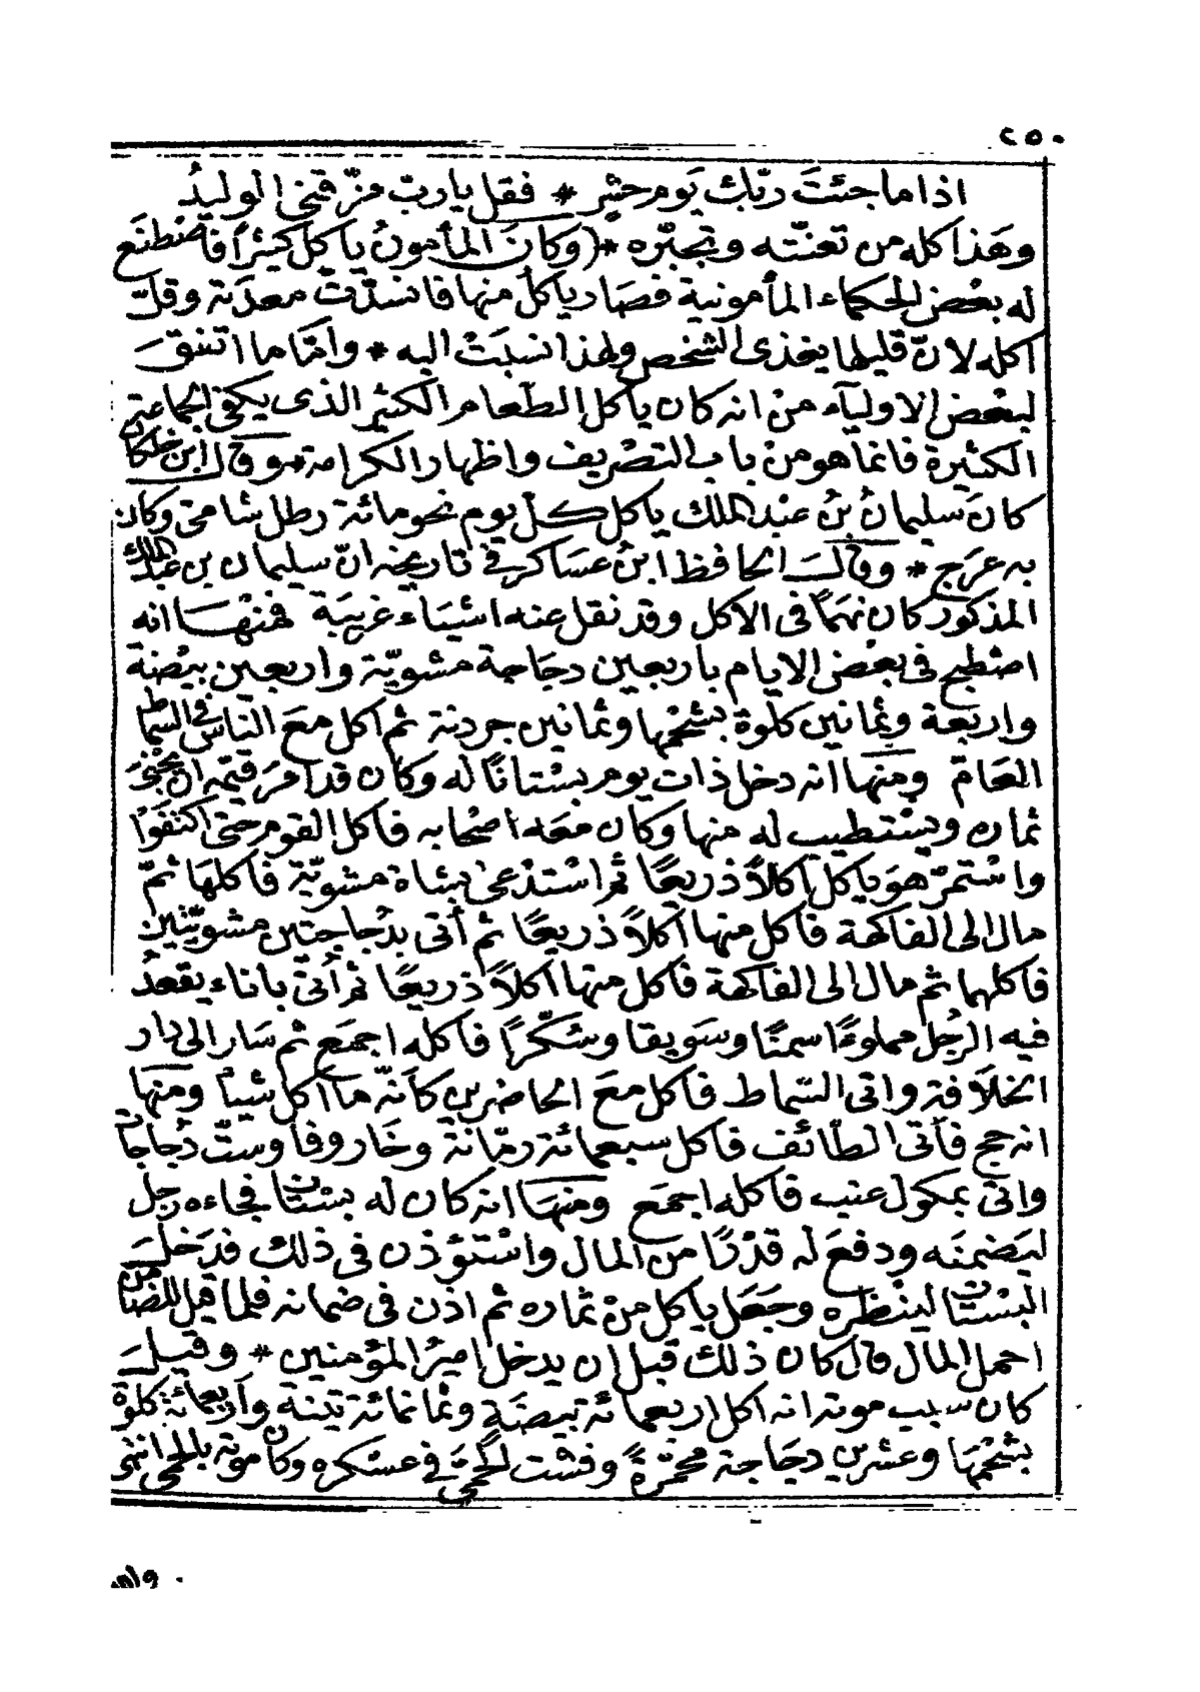 ٢٥٠
اذا ما جئتَ ربّك يَوم حشرٍ * فقل يا ربّ مزّقنى الوليدُ
وهَذا كله من تعنّته وتجبّره * (وكانَ المأمونُ يأكل كثيرًا فاصْطنَع
له بعْض الحكماء المأمونية فصَار يأكل منها فانسدّتْ معدته وقلّ
اكله لانّ قليلها يغذى الشخص ولهذا نسبَتْ اليه * وامّا ما اتفقَ
لبعْض الاوليآء منْ انه كان يأكل الطّعام الكثير الذى يكفى الجماعة
الكثيرة فانما هو منْ باب التصْريف واظهار الكرامة * وقال ابن خلكان
كانَ سليمانُ بنُ عبْد الملك يأكل كلّ يوم نحو مائة رطل شامى وكان
به عرَج * وقالَ الحافظ ابنُ عسَاكر فى تاريخه انّ سليمان بن عبد الملك
المذكور كان نهمًا فى الاكل وقد نقل عنه اشيَاء غريبَة فمنْهَا انه
اصْطبح فى بعْض الايام باربعين دجَاجة مشويّة واربعين بيْضة
واربعة وثمانين كلْوة بشحْمها وثمانين جردقة ثم اكل معَ الناس فى السماط
العَامّ ومنْها انه دخل ذات يوم بسْتانًا له وكان قد امَر قيّمه ان يجْنىَ
ثماره ويسْتطيب له منها وكان معَه اصْحابه فاكل القوم حتى اكتفَوْا
واسْتمرّ هوَ يأكل اكلاً ذريعًا ثم اسْتدْعىٰ بشاة مشويّة فأكلهَا ثمّ
مال الى الفاكهة فأكل منها اكلاً ذريعًا ثم أتى بدُجاجتين مشويّتين
فاكلهما ثم مال الى الفاكهة فأكل منها اكلاً ذريعًا ثم أتى باناء يقعدُ
فيه الرجُل مملوءًا سمنًا وسَويقا وسُكّرًا فأكله اجمَع ثم سَار الى دار
الخلاَفة واتى السّماط فأكل معَ الحاضرين كأنّه ما اكل شيأ ومنها
انه حج فأتى الطّائف فأكل سبعمائة رمّانة وخَاروفا وستّ دُجاجات
واتىَ بمكول عنب فأكله اجمَع ومنهَا انه كان له بسْتان فجاءه رجل
ليَضمنَه ودفعَ له قدْرًا من المال واسْتؤذن فى ذلك فدَخلَ
البسْتان لينْظره وجعَل يأكل منْ ثماره ثم اذن فى ضمانه فلما قيل للضامن
احمل المال قال كان ذلك قبل ان يدخل اميرُ المؤمنين * وقيلَ
كان سبب موته انه اكل اربعمائة بيضَة وثمانمائة تينة وأربعمائة كلوة
بشحْمهَا وعشرين دجَاجة محمّرةً وفشت الحمىَّ فى عسْكره وكان موته بالحمى انتهى